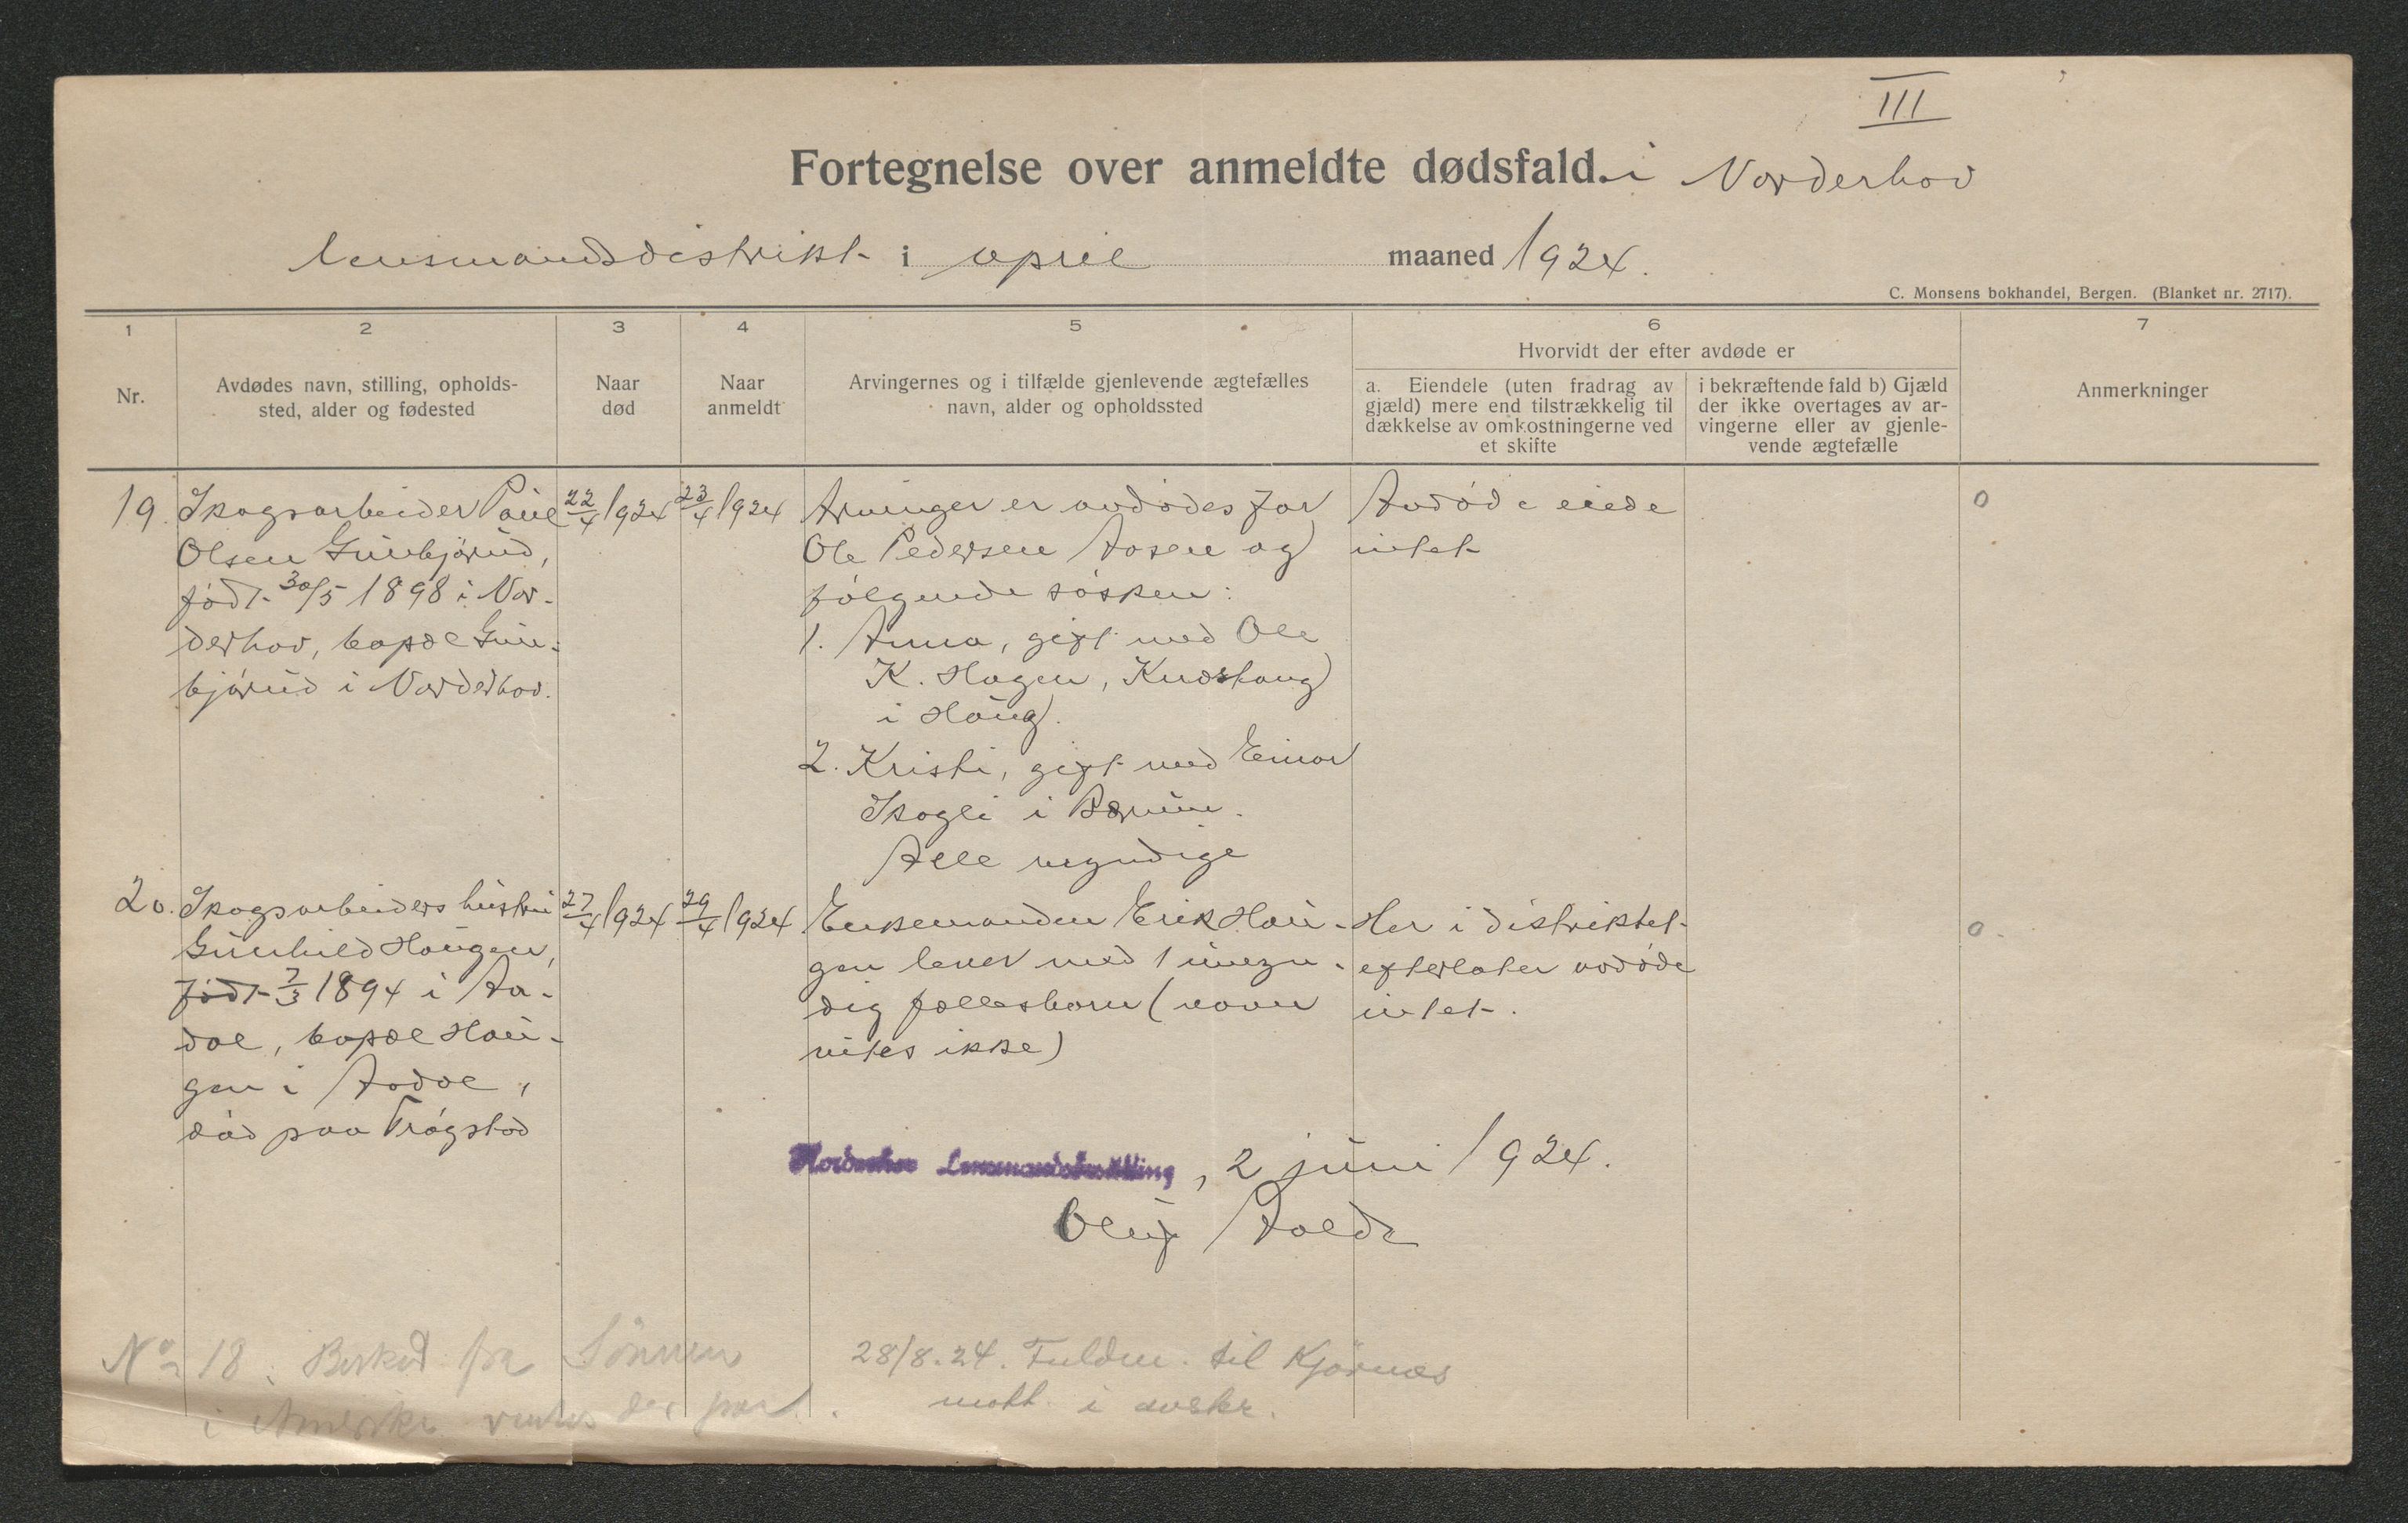 III
Fortegnelse over anmeldte dødsfald. i Norderhov
lensmandsdistrikt i april maaned 1924.
C. Monsens bokhandel, Bergen. (Blanket nr. 2717).
1 2 3 4 5 6 7
Nr.
Avdødes navn, stilling, opholds-
sted, alder og fødested
Naar
død
Naar
anmeldt
Arvingernes og i tilfælde gjenlevende ægtefælles
navn, alder og opholdssted
Hvorvidt der efter avdøde er
a. Eiendele (uten fradrag av
gjæld) mere end tilstrækkelig til
dækkelse av omkostningerne ved
et skifte
i bekræftende fald b) Gjæld
der ikke overtages av ar-
vingerne eller av gjenle-
vende ægtefælle
Anmerkninger
19. Skogsarbeider Paul
Olsen Gunbjørud,
født 30/5 1898 i Nor-
derhov, bopæl Gun-
bjørud i Norderhov.
22/4 1924
23/4 1924
Arvinger er avdødes far
Ole Pedersen Aasen og
følgende søsken:
1. Anna, gift med Ole
K. Hagen, Knestang
i Haug.
2. Kristi, gift med Einar
Skogli i Bærum.
Alle myndige
Avdøde eiede
intet
0
20. Skogsarbeiders hustru
Gunhild Haugen,
født 7/3 1894 i Aa-
dal, bopæl Hau-
gen i Aadal,
død paa Trøgstad
27/4 1924
29/4 1924
Enkemanden Erik Hau-
gen lever med 1 umyn-
dig fællesbarn (navn
vites ikke)
Her i distriktet
efterlater avdøde
intet.
0
Norderhov Lensmandsbestilling, 2 juni 1924.
Oluf
No 18. Besked fra Sönnen
i Amerika ventes
28/8.24. Fuldm. til Kjörnæs
mott. i